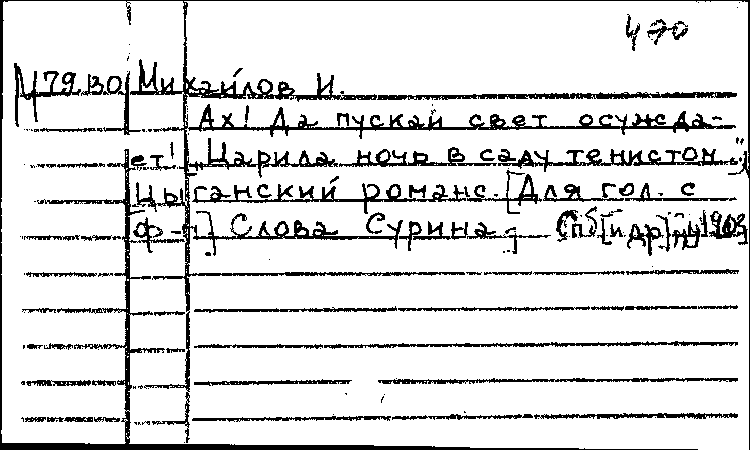 470
М 79.130 Михайлов И.
Ах! Да пускай свет осужда-
ет! „Царила ночь в саду тенистом..."
Цыганский романс. [Для гол. с
ф-п]. Слова Сурина. Спб [и др]